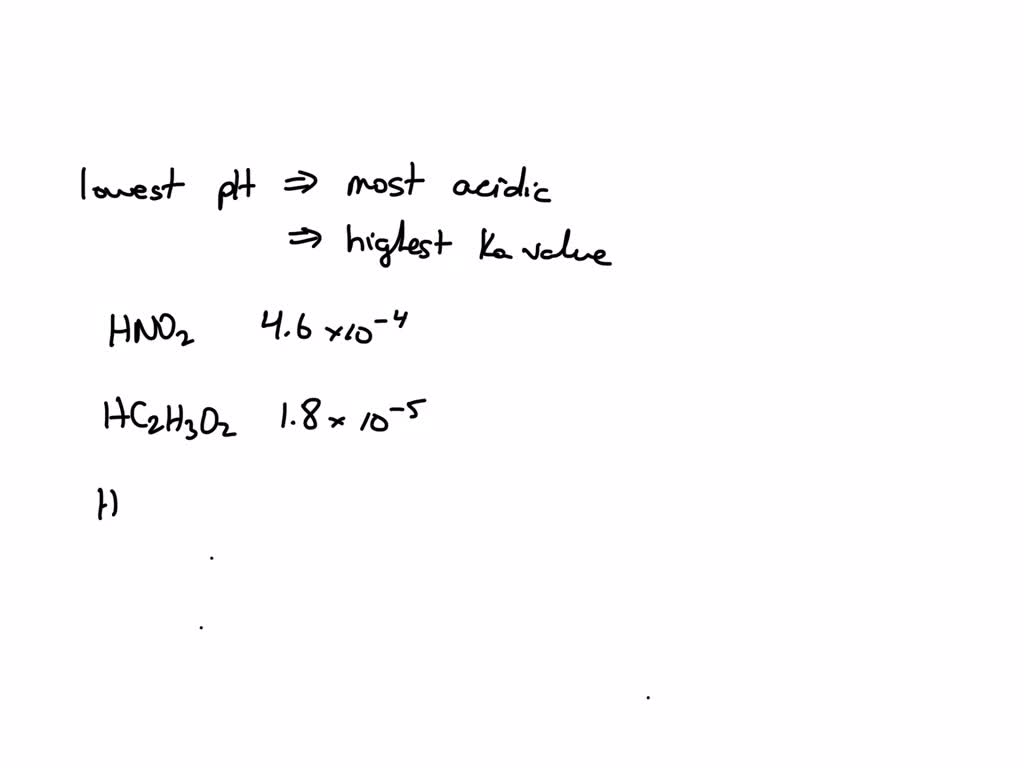 lowest pH ⇒ most acidic
⇒ highest Ka value
HNO₂ 4.6 ×10⁻⁴
HC₂H₃O₂ 1.8 × 10⁻⁵
H